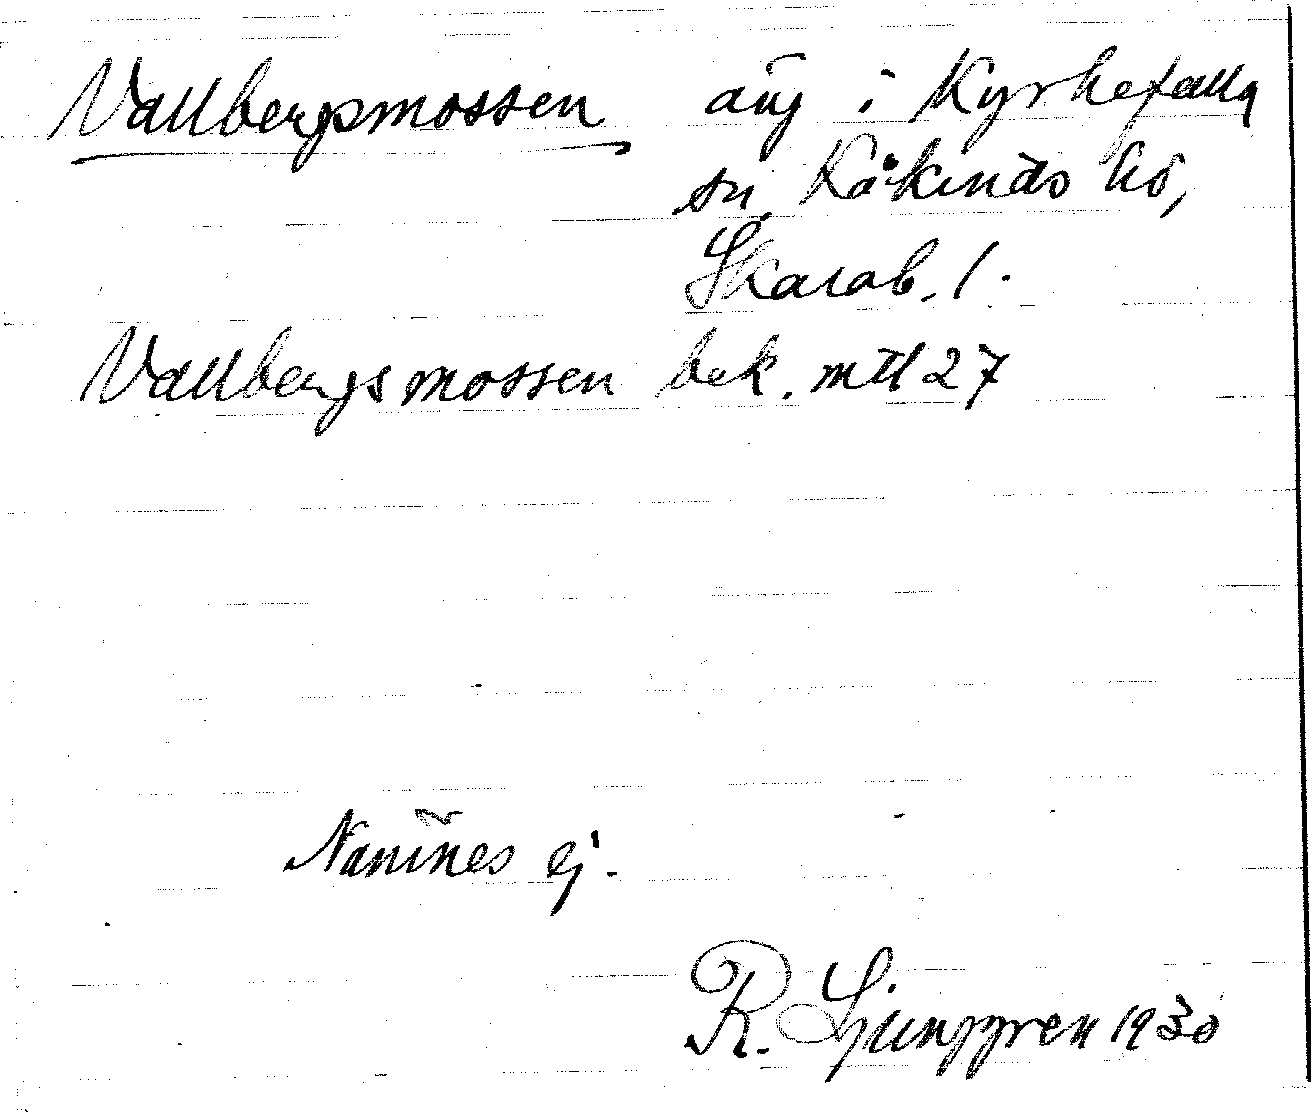 Vallbergsmossen äng i Kyrkefalla
sn, Kåkinds hd,
Skarab. l.
Vallbergsmossen bek. mtl 27
Namnes ej.
R. Ljunggren 1930